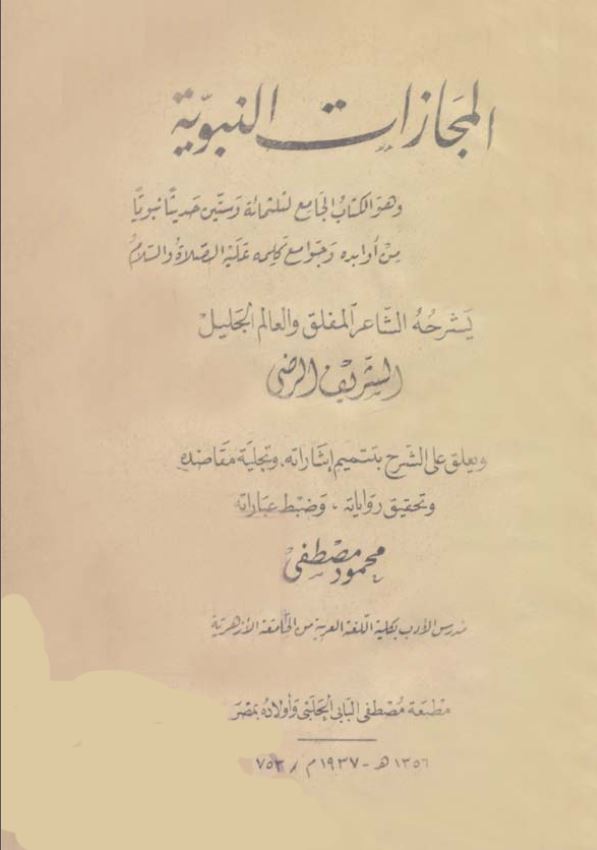 المَجَازات النبوّية
وهوَ الكتابُ الجامع لثلثمائة وستّين حَديثًا نبويًّا
مِنْ أوابده وَجَوامع كلِمه عَليْه الصَّلاةُ والسّلامُ
يَشرحُهُ الشّاعر المفلق والعالم الجَليلْ
الشريف الرضى
ويعلق على الشرح بتتميم إشاراته، وتجليَة مقَاصْدِه
وتحقيق روَاياته ، وَضبْط عبَاراته
محمود مصْطفىْ
مدرس الأدب بكلية اللّغة العربية من الجَامعَة الأزهريّة
مطبَعة مُصْطفى البَابى الحِلَبىْ وَأولادُه بمصْرَ
١٣٥٦ هـ - ١٩٣٧ م / ٧٥٣